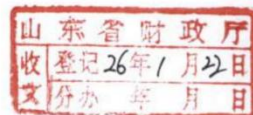 山东省财政厅
收文
登记26年1月22日
分办 年 月 日